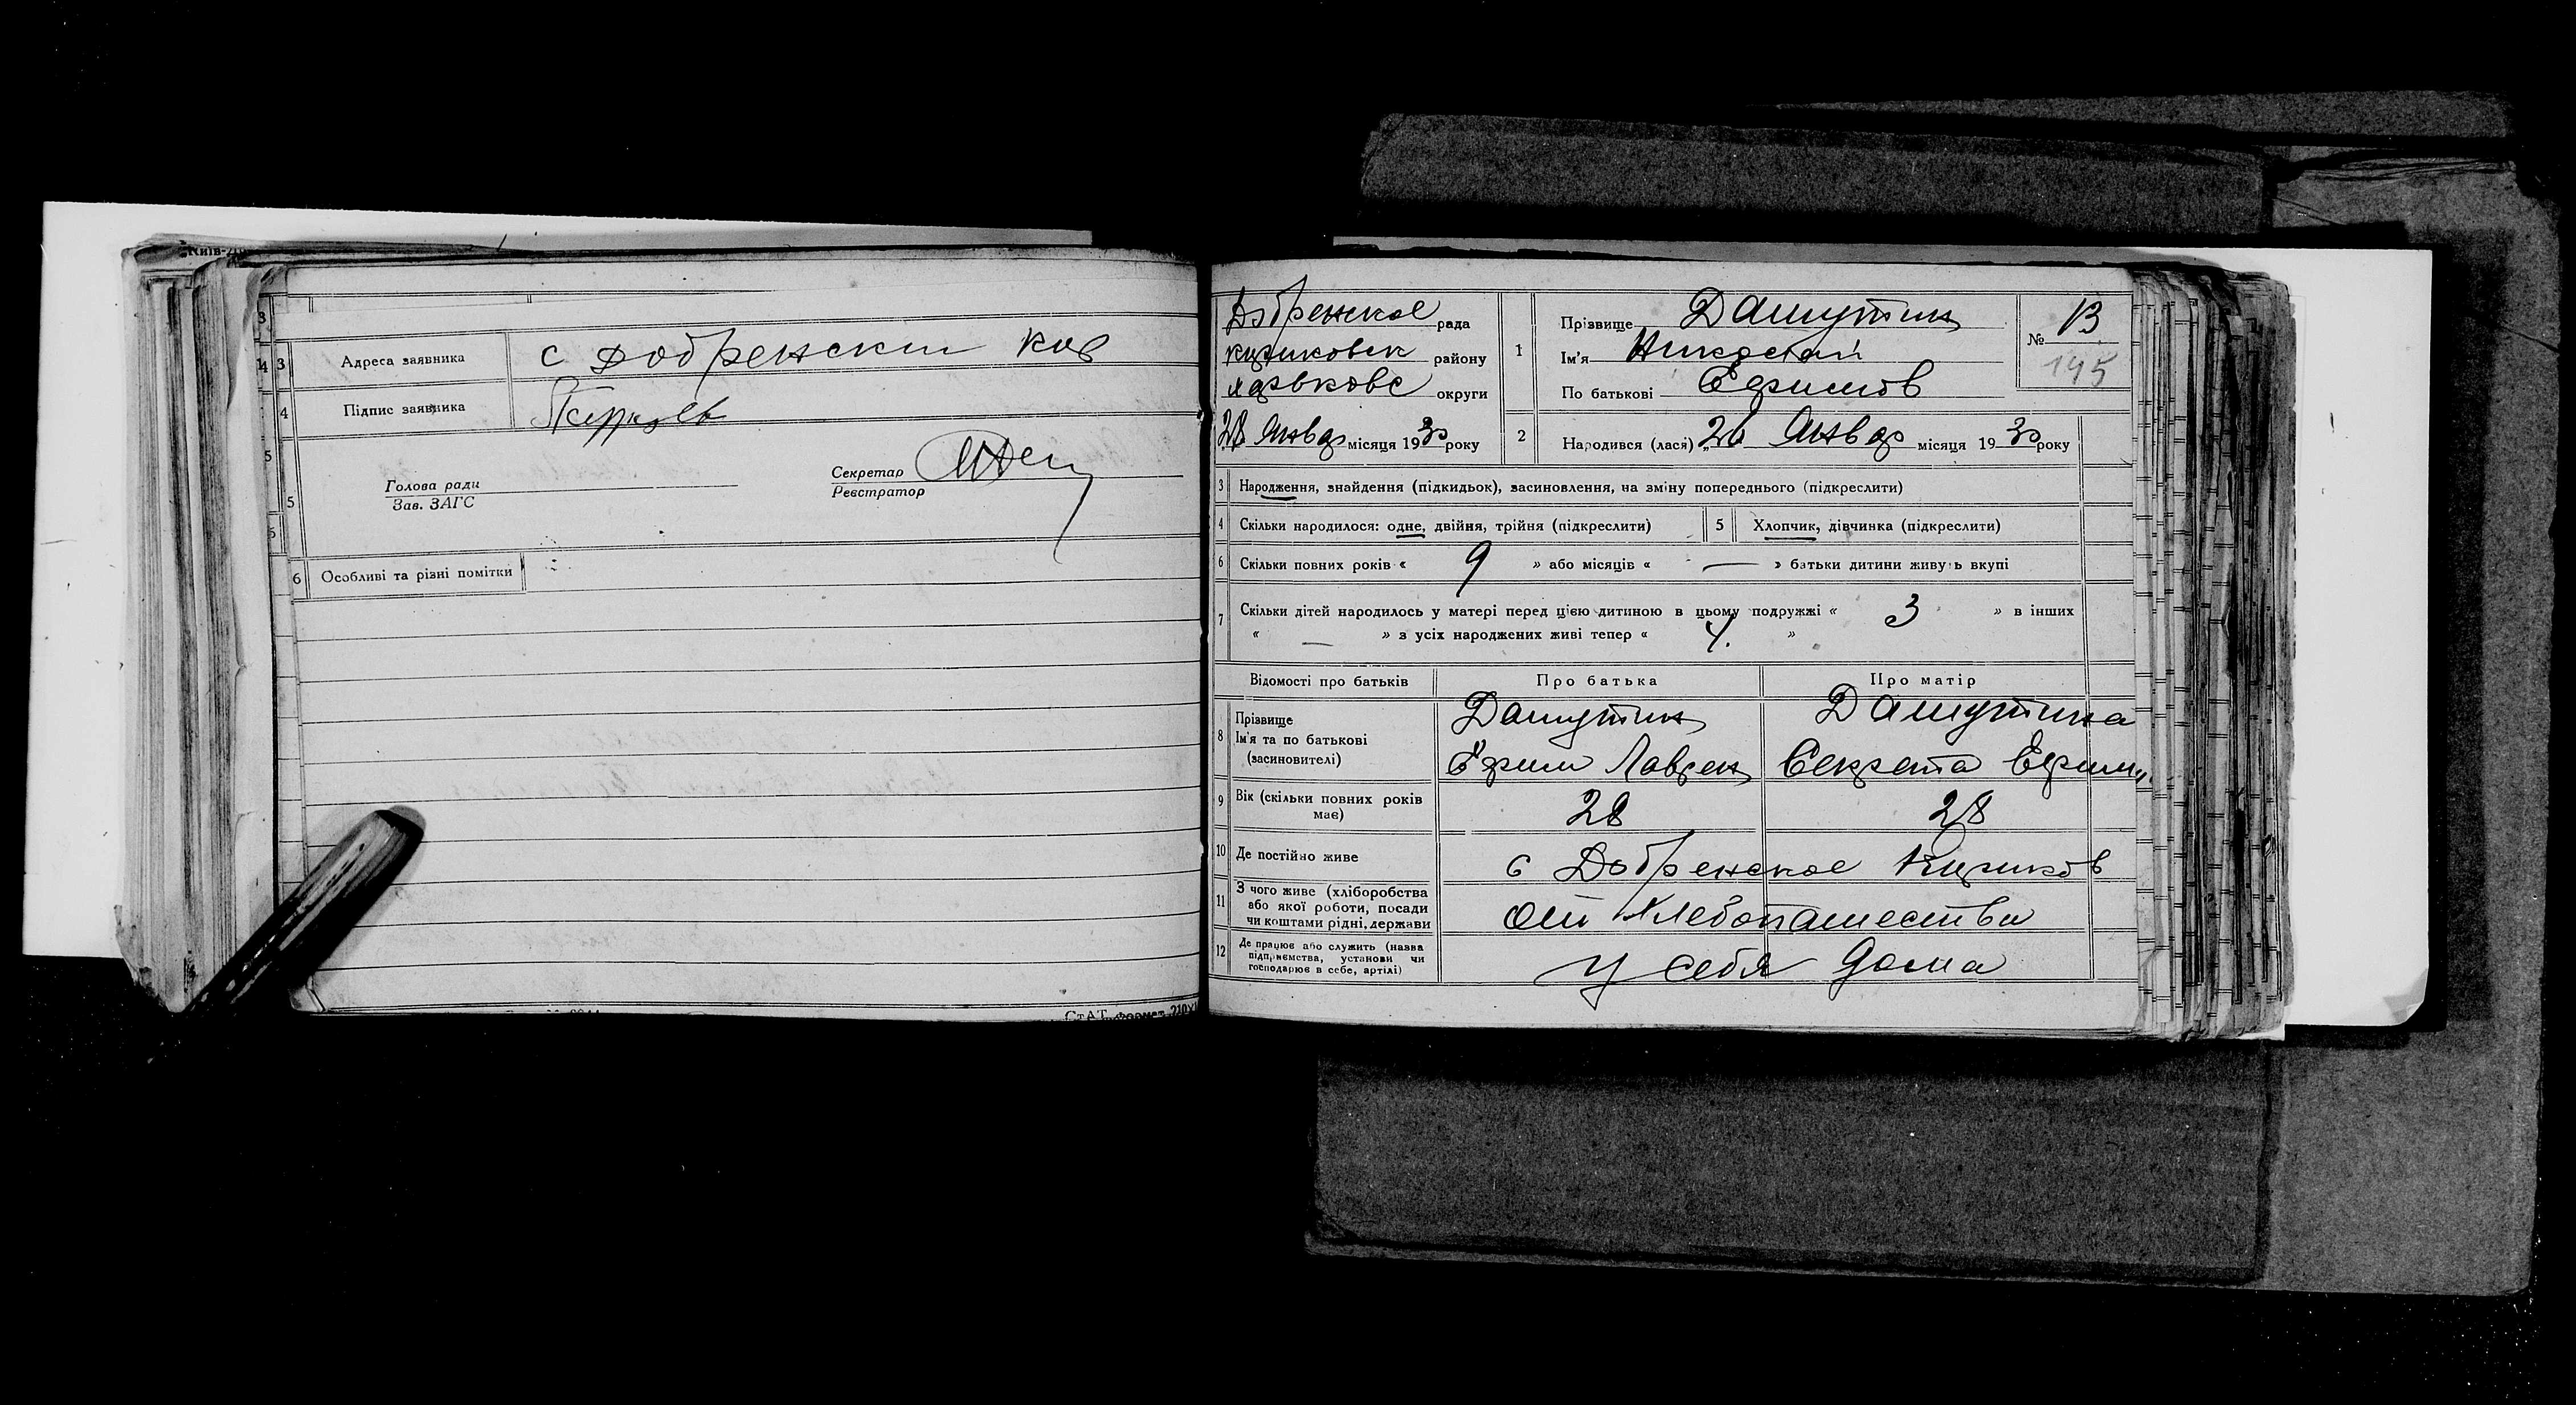 Адреса заявника с Добренски
Підпис заявника
Секретар
Голова ради
Реєстратор
Зав. ЗАГС
Особливі та різні помітки
Добренское рада
району
округи
28 Январ місяця 1930 року
1
Прізвище Дашутин
Ім'я Николай
По батькові Ефимов
№ 13
145
2 Народився (лася) „26 Январ місяця 1930 року
3 Народження, знайдення (підкидьок), засиновлення, на зміну попереднього (підкреслити)
4 Скільки народилося: одне, двійня, трійня (підкреслити) 5 Хлопчик, дівчинка (підкреслити)
6 Скільки повних років « 9 » або місяців « — » батьки дитини живуть вкупі
7 Скільки дітей народилось у матері перед цією дитиною в цьому подружжі « 3 » в інших
« — » з усіх народжених живі тепер « 4. »
Відомості про батьків Про батька Про матір
8 Прізвище Дашутин Дашутина
Ім'я та по батькові
(засновителі) Ефим Лаврен
9 Вік (скільки повних років 28 28
має)
10 Де постійно живе с Добренское
11 З чого живе (хліборобства
або якої роботи, посади от Хлебопашества
чи коштами рідні, держави
12 Де працює або служить (назва
підприємства, установи чи у себя дома
господарює в себе, артілі)